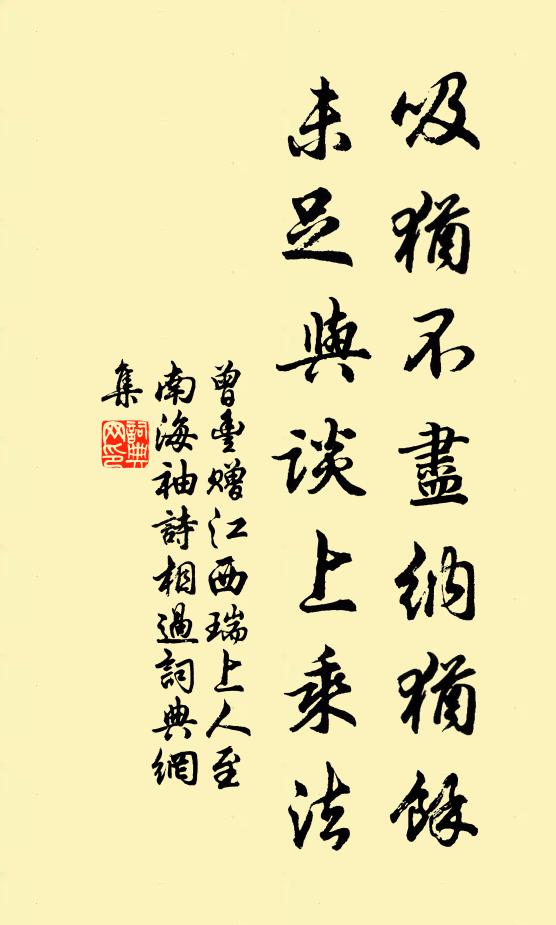 吸猶不盡納猶餘
未足與談上乘法
曾豐贈江西瑞上人至
南海袖詩相過詞典網
集
詞典
网印